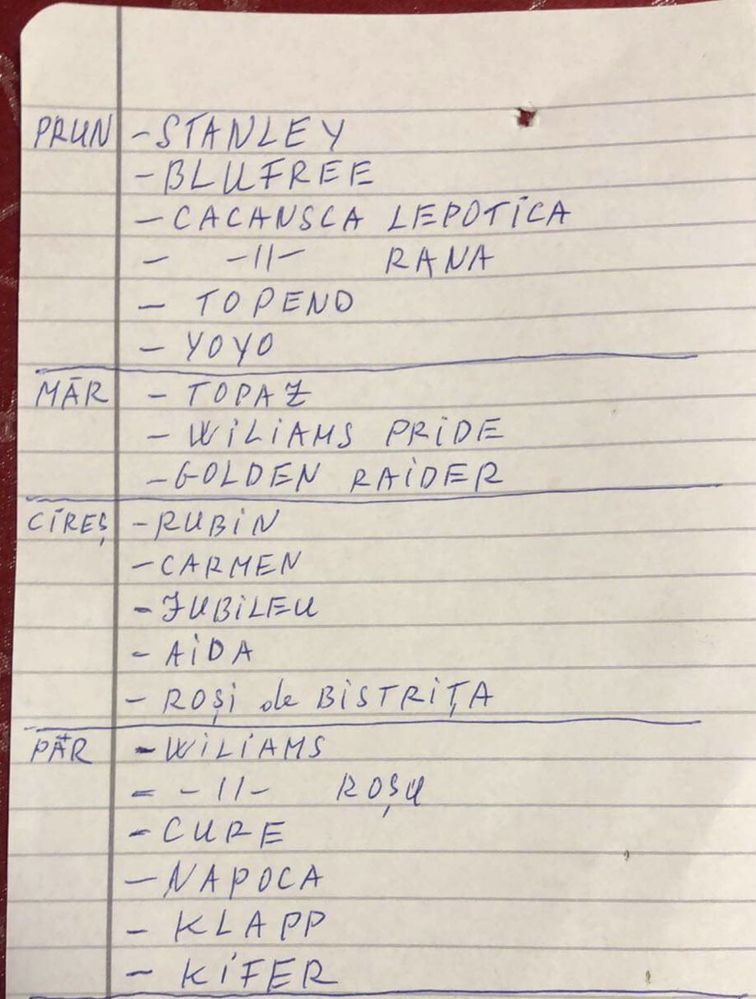 PRUN - STANLEY
- BLUFREE
- CACANSCA LEPOTICA
- -11- RANA
- TOPEND
- YOYO
MĂR - TOPAZ
- WILIAMS PRIDE
- GOLDEN RAIDER
CIREȘ - RUBIN
- CARMEN
- JUBILEU
- AIDA
- ROȘI de BISTRIȚA
PĂR - WILIAMS
- -11- ROȘU
- CURE
- NAPOCA
- KLAPP
- KIFER